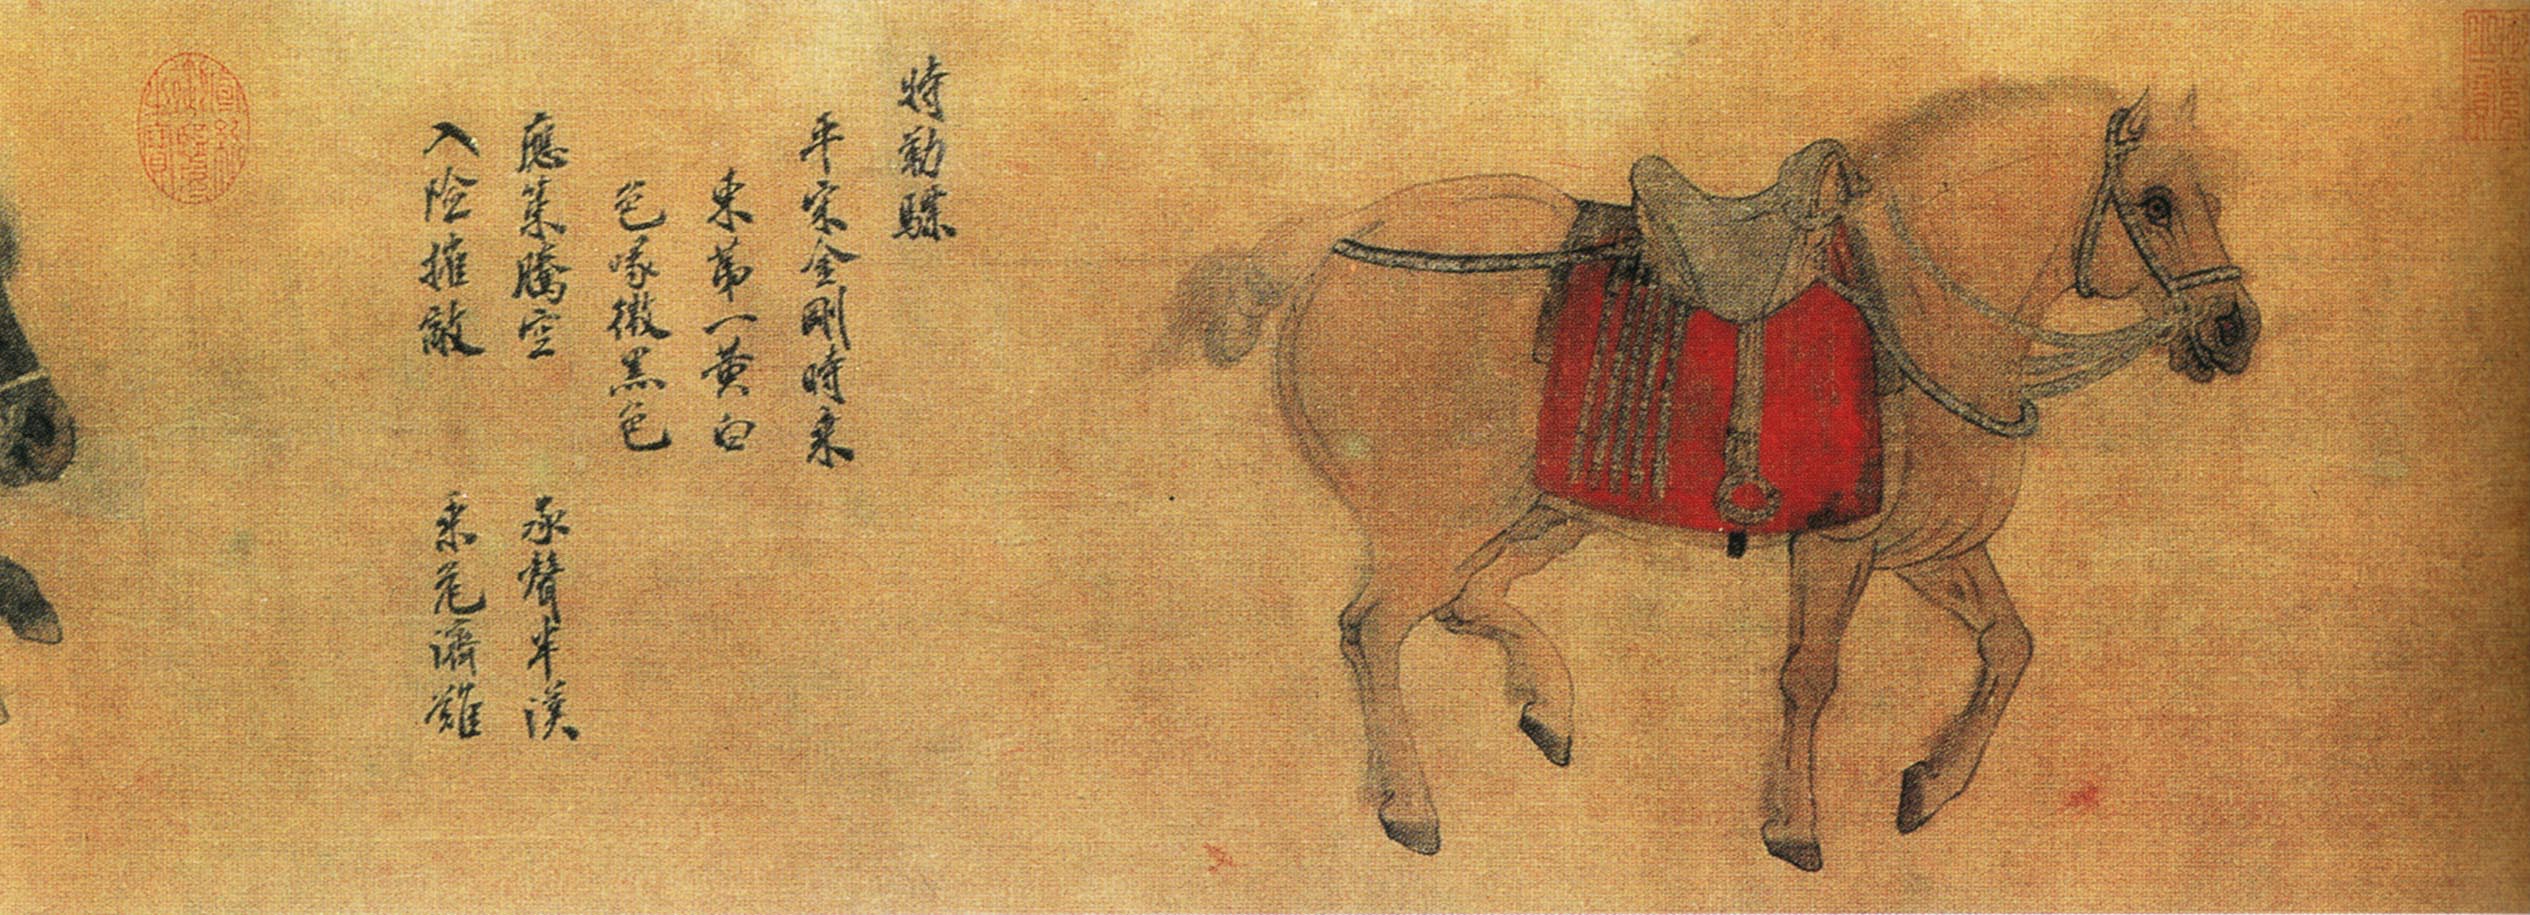 特勤驃
平宋金剛時乘
東第一黃白
色喙微黑色
應策騰空 承聲半漢
入險摧敵 乘危濟難